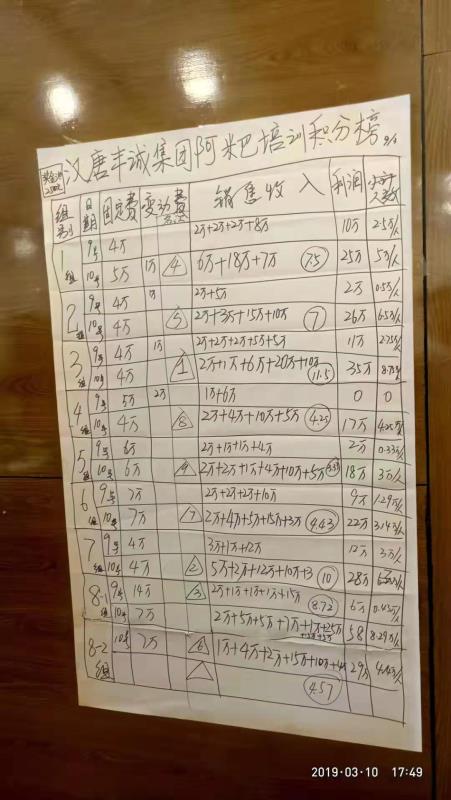 汉唐丰诚集团阿米巴培训积分榜
组别 日期 固定费 变动费 销售收入 利润 人数
1组 9号 4万 2万+2万+2万+8万 10万 2.5万/人
10号 5万 1万 4 6万+18万+7万 7.5 25万 5万/人
2组 9号 4万 1万 2万+5万 2万 0.5万/人
10号 4万 5 2万+3万+15万+10万 7 26万 6.5万/人
3组 9号 4万 1万 2万+2万+2万+5万+5万 11万 2.75万/人
10号 4万 1 2万+1万+6万+20万+10万 11.5 35万 8.75万/人
4组 9号 5万 2万 1万+6万 0 0
10号 4万 8 2万+4万+10万+5万 4.25 17万 4.25万/人
5组 9号 6万 2万+1万+1万+4万 2万 0.33万/人
10号 6万 9 2万+2万+1万+4万+10万+5万 18万 3万/人
6组 9号 7万 2万+2万+2万+10万 9万 1.29万/人
10号 7万 7 2万+4万+5万+15万+3万 4.43 22万 3.14万/人
7组 9号 4万 3万+1万+12万 12万 3万/人
10号 4万 2 5万+2万+12万+10万+3 10 28万
8-1组 9号 14万 3 2万+1万+1万+1万+15万 8.72 6万 0.43万/人
10号 7万 2万+5万+5万+7万+1万+25万 58 8.29万/人
8-2组 10号 7万 6 1万+4万+2万+15万+10万+4万 29万 4.14万/人
4.57
2019-03-10 17:49